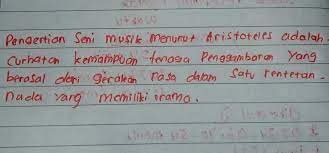 Pengertian Seni musik menurut Aristoteles adalah.
Curhatan kemampuan tenaga Penggambaran yang
berasal dari gerakan rasa dalam Satu rentetan.
nada yang memiliki irama.